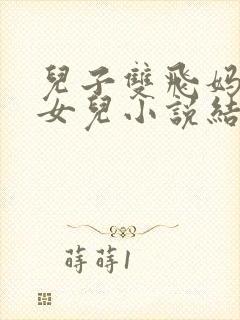 兒子雙飛媽
女兒小說結
蒔蒔1